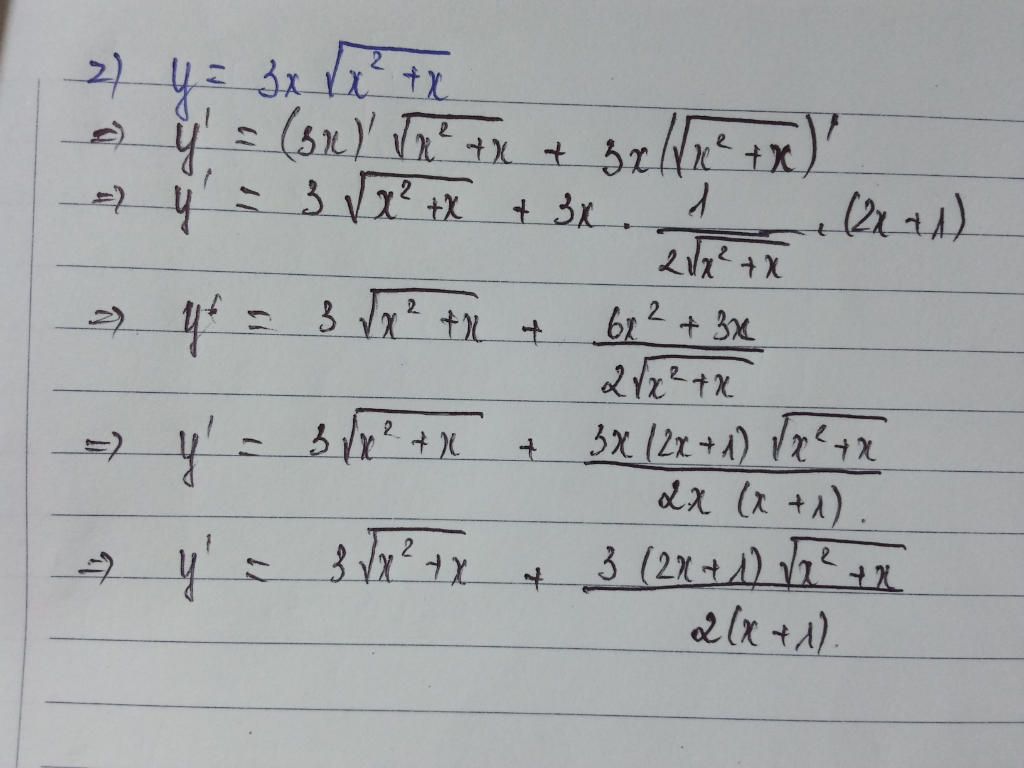 2) y = 3x √(x² + x)
⇒ y' = (3x)' √(x² + x) + 3x (√(x² + x))'
⇒ y' = 3 √(x² + x) + 3x . 1/(2√(x² + x)) . (2x + 1)
⇒ y' = 3 √(x² + x) + (6x² + 3x)/(2√(x² + x))
⇒ y' = 3√(x² + x) + (3x (2x + 1) √(x² + x))/(2x (x + 1)).
⇒ y' = 3√(x² + x) + (3 (2x + 1) √(x² + x))/(2(x + 1)).